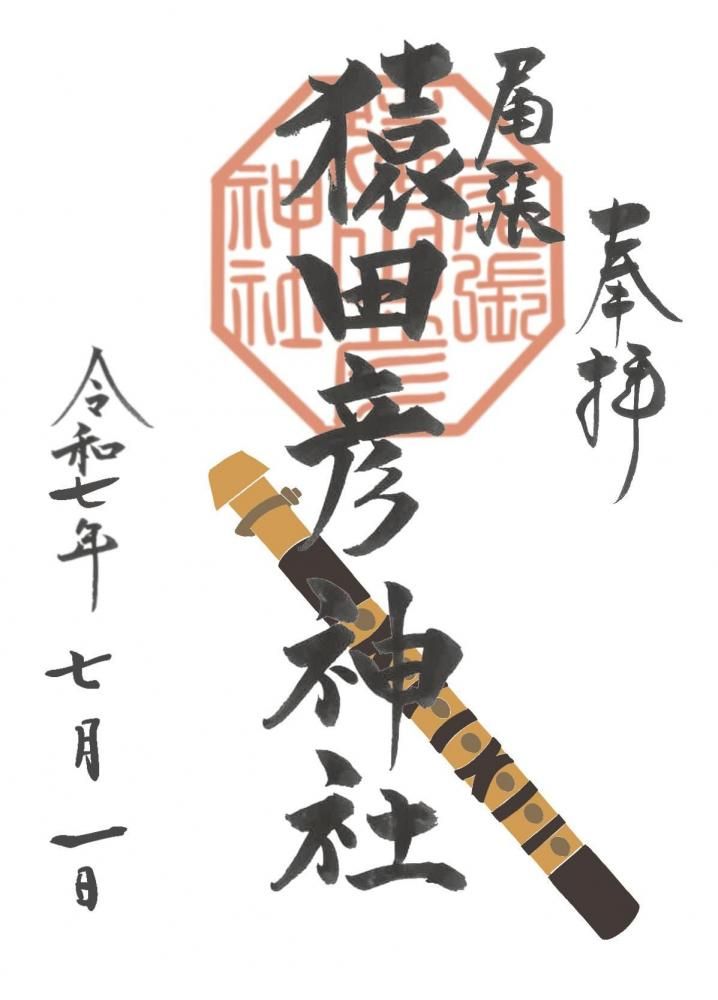 奉拝
尾張
猿田彦神社
尾張
猿田彦
神社
令和七年 七月 一日